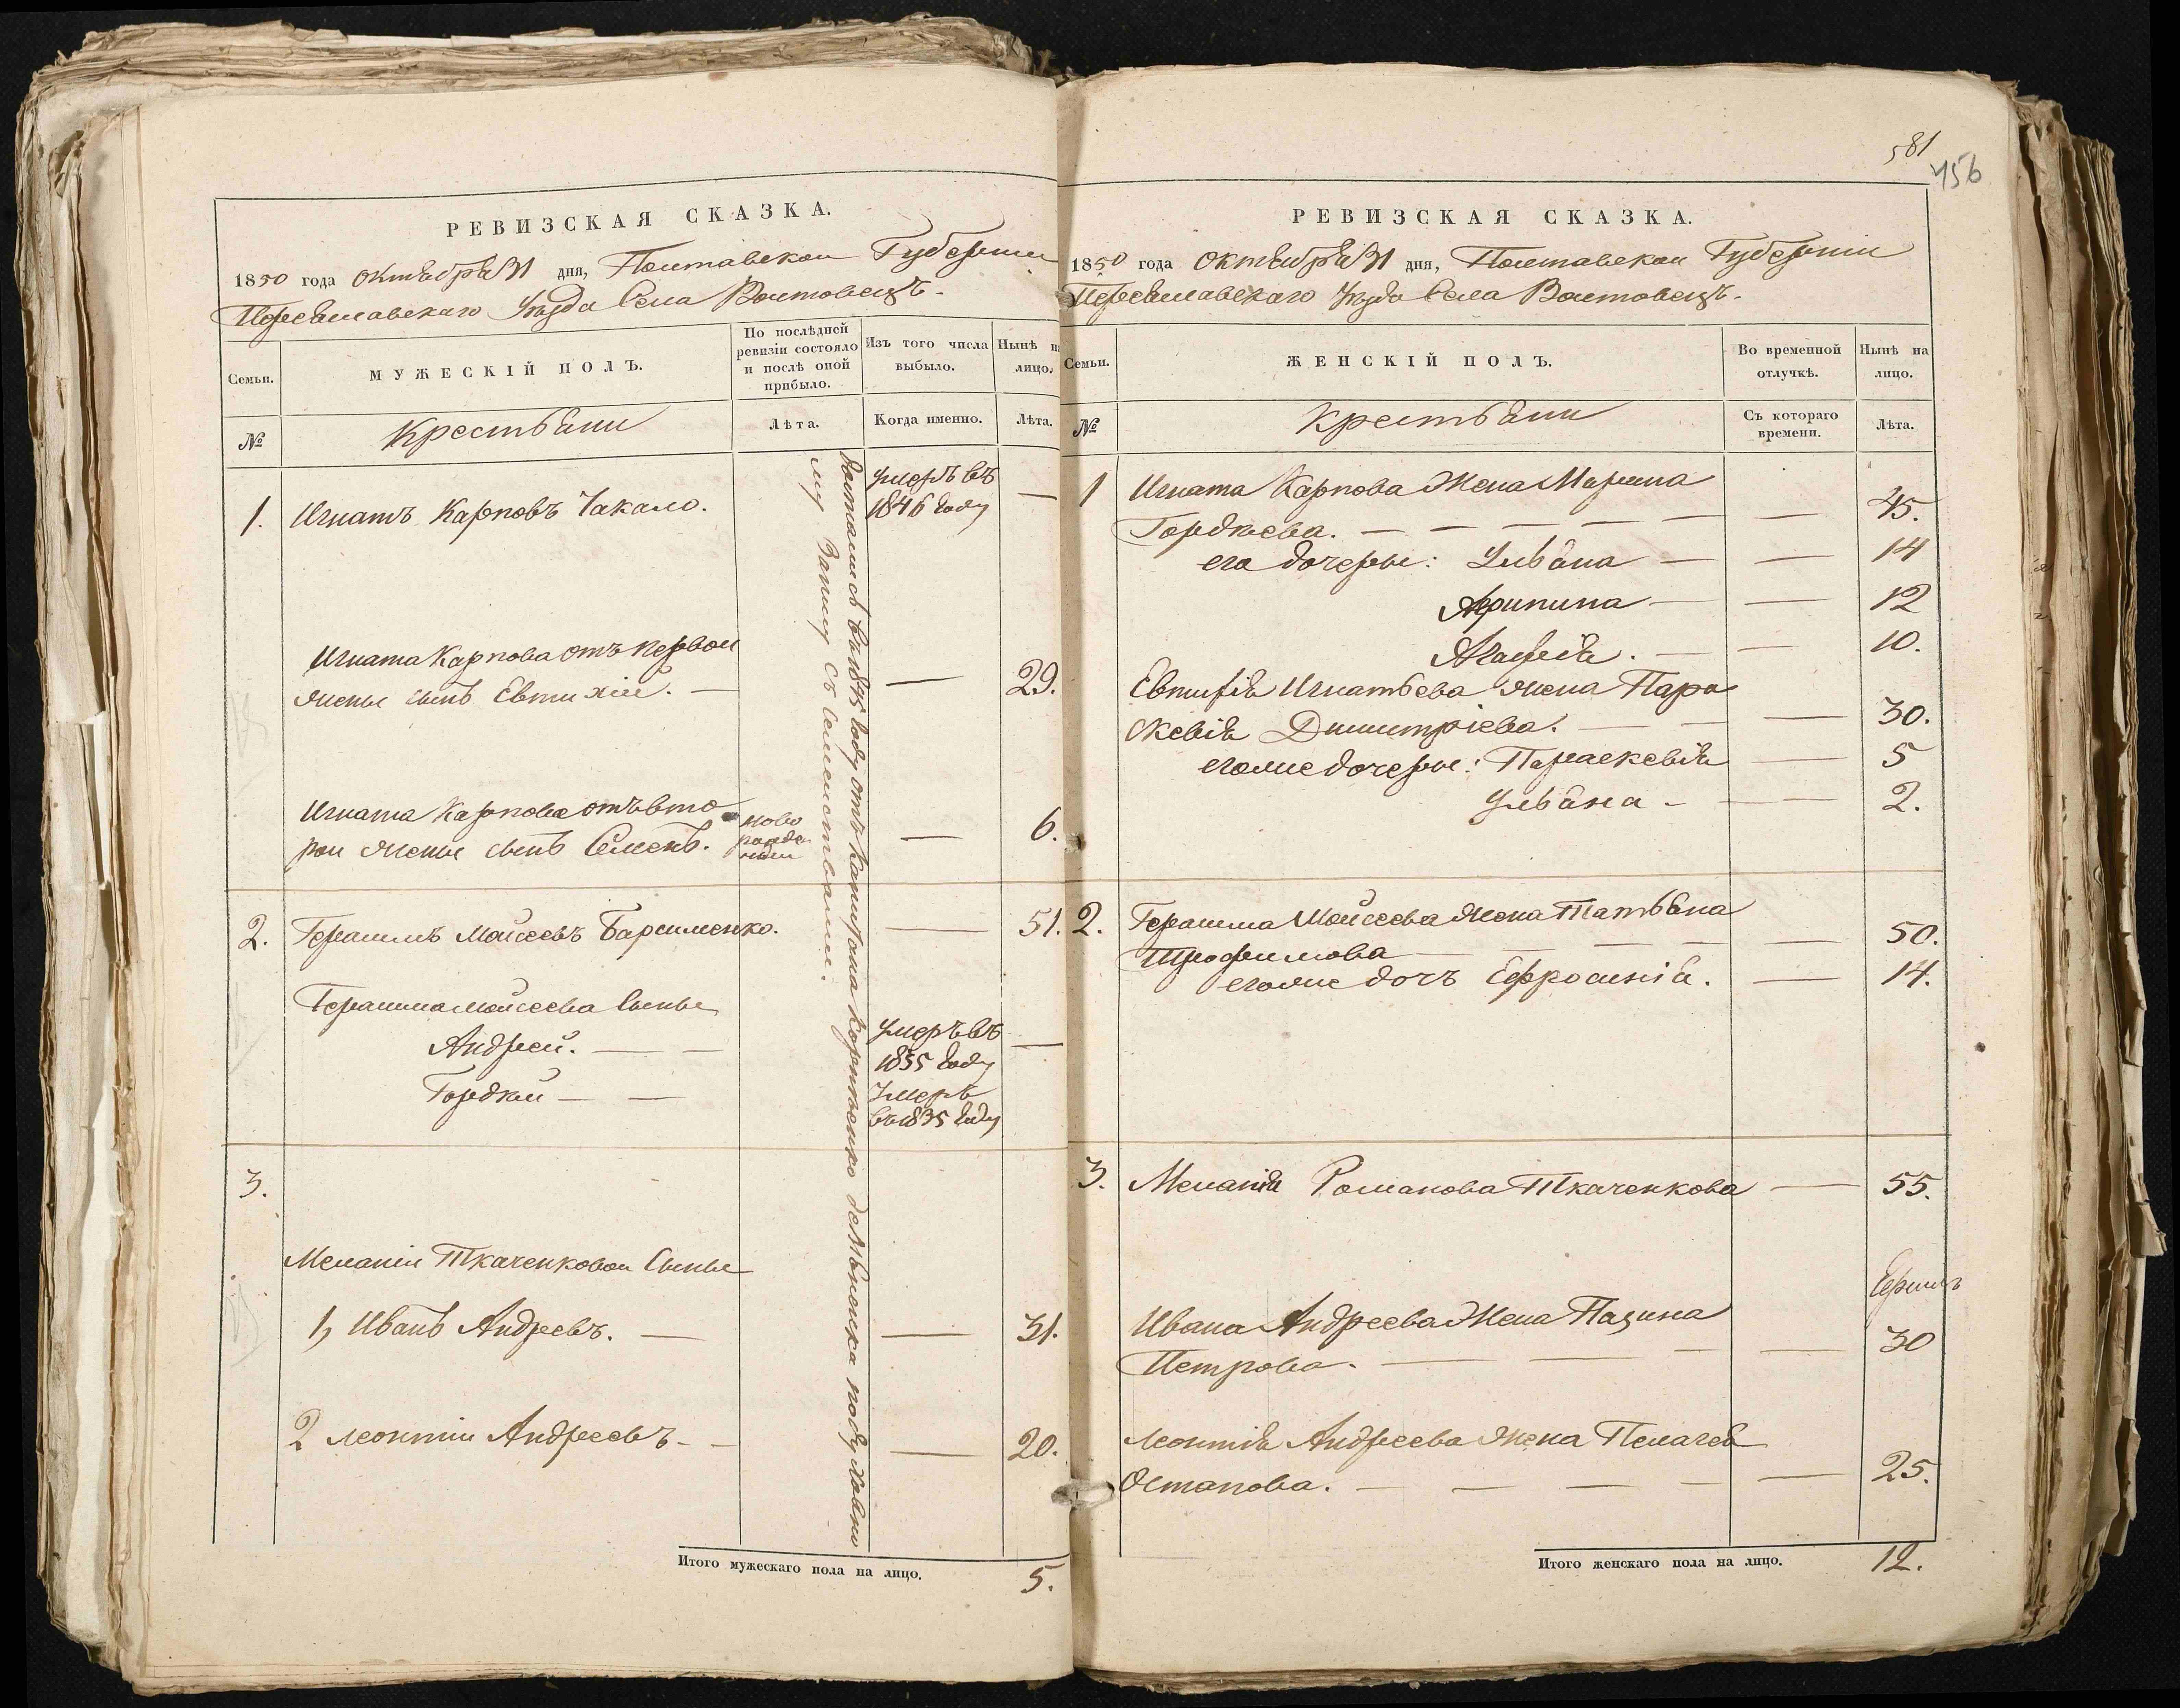 РЕВИЗСКАЯ СКАЗКА.
1850 года октября 31 дня, Полтавской Губернии
Переяславскаго Уезда Села Войтовецъ.
Семьи.
МУЖЕСКІЙ ПОЛЪ.
По послѣдней ревизіи состояло и послѣ оной прибыло.
Изъ того числа выбыло.
Нынѣ на лицо.
№
Крестьяни
Лѣта.
Когда именно.
Лѣта.
1. Игнатъ Карповъ Чакало.
умеръ въ
1846 году
—
Игната Карпова отъ первой
жены сынъ Евтихій. — — 29.
Игната Карпова отъ вто
рой жены сынъ Семенъ.
ново
рожде
— 6.
2. Герасимъ Моисеевъ Барсименко. — 51.
Герасима Моисеева Сынье
Андрей. — —
умеръ въ
1835 году
—
Гордей — —
Умеръ
въ 1835 году
3.
Меланіи Ткаченковой Сынье
1, Иванъ Андреевъ. — — 31.
2 Леонтій Андреевъ. — — 20.
достались въ 1845 году отъ Капитона
му Запису съ Семействами.
Итого мужескаго пола на лицо. 5.
581
456
РЕВИЗСКАЯ СКАЗКА.
1850 года октября 31 дня, Полтавской Губерніи
Переяславскаго Уезда Села Войтовецъ.
Семьи.
ЖЕНСКІЙ ПОЛЪ.
Во временной отлучкѣ.
Нынѣ на лицо.
№
Крестьяни
Съ котораго времени.
Лѣта.
1 Игната Карпова Жена Марина
Гордѣева. — — — — — — 45.
его дочеры: Ульяна — — 14
Агрипина — — 12
Агафія. — — 10.
Евтифія Игнатьева жена Пара
скевія Димитріева. — — — 30.
егоже дочеры: Параскевія — 5
Ульяна — — 2.
2. Герасима Моисеева жена Татьяна
Трофимова — — — — — 50.
егоже дочъ Ефросинія. — 14.
3. Меланія Романова Ткаченкова — 55.
Ивана Андреева Жена Пазина
Петрова. — — — — 30
Леонтія Андреева жена Пелагея
Остапова. — — — — — 25.
Итого женскаго пола на лицо. 12.